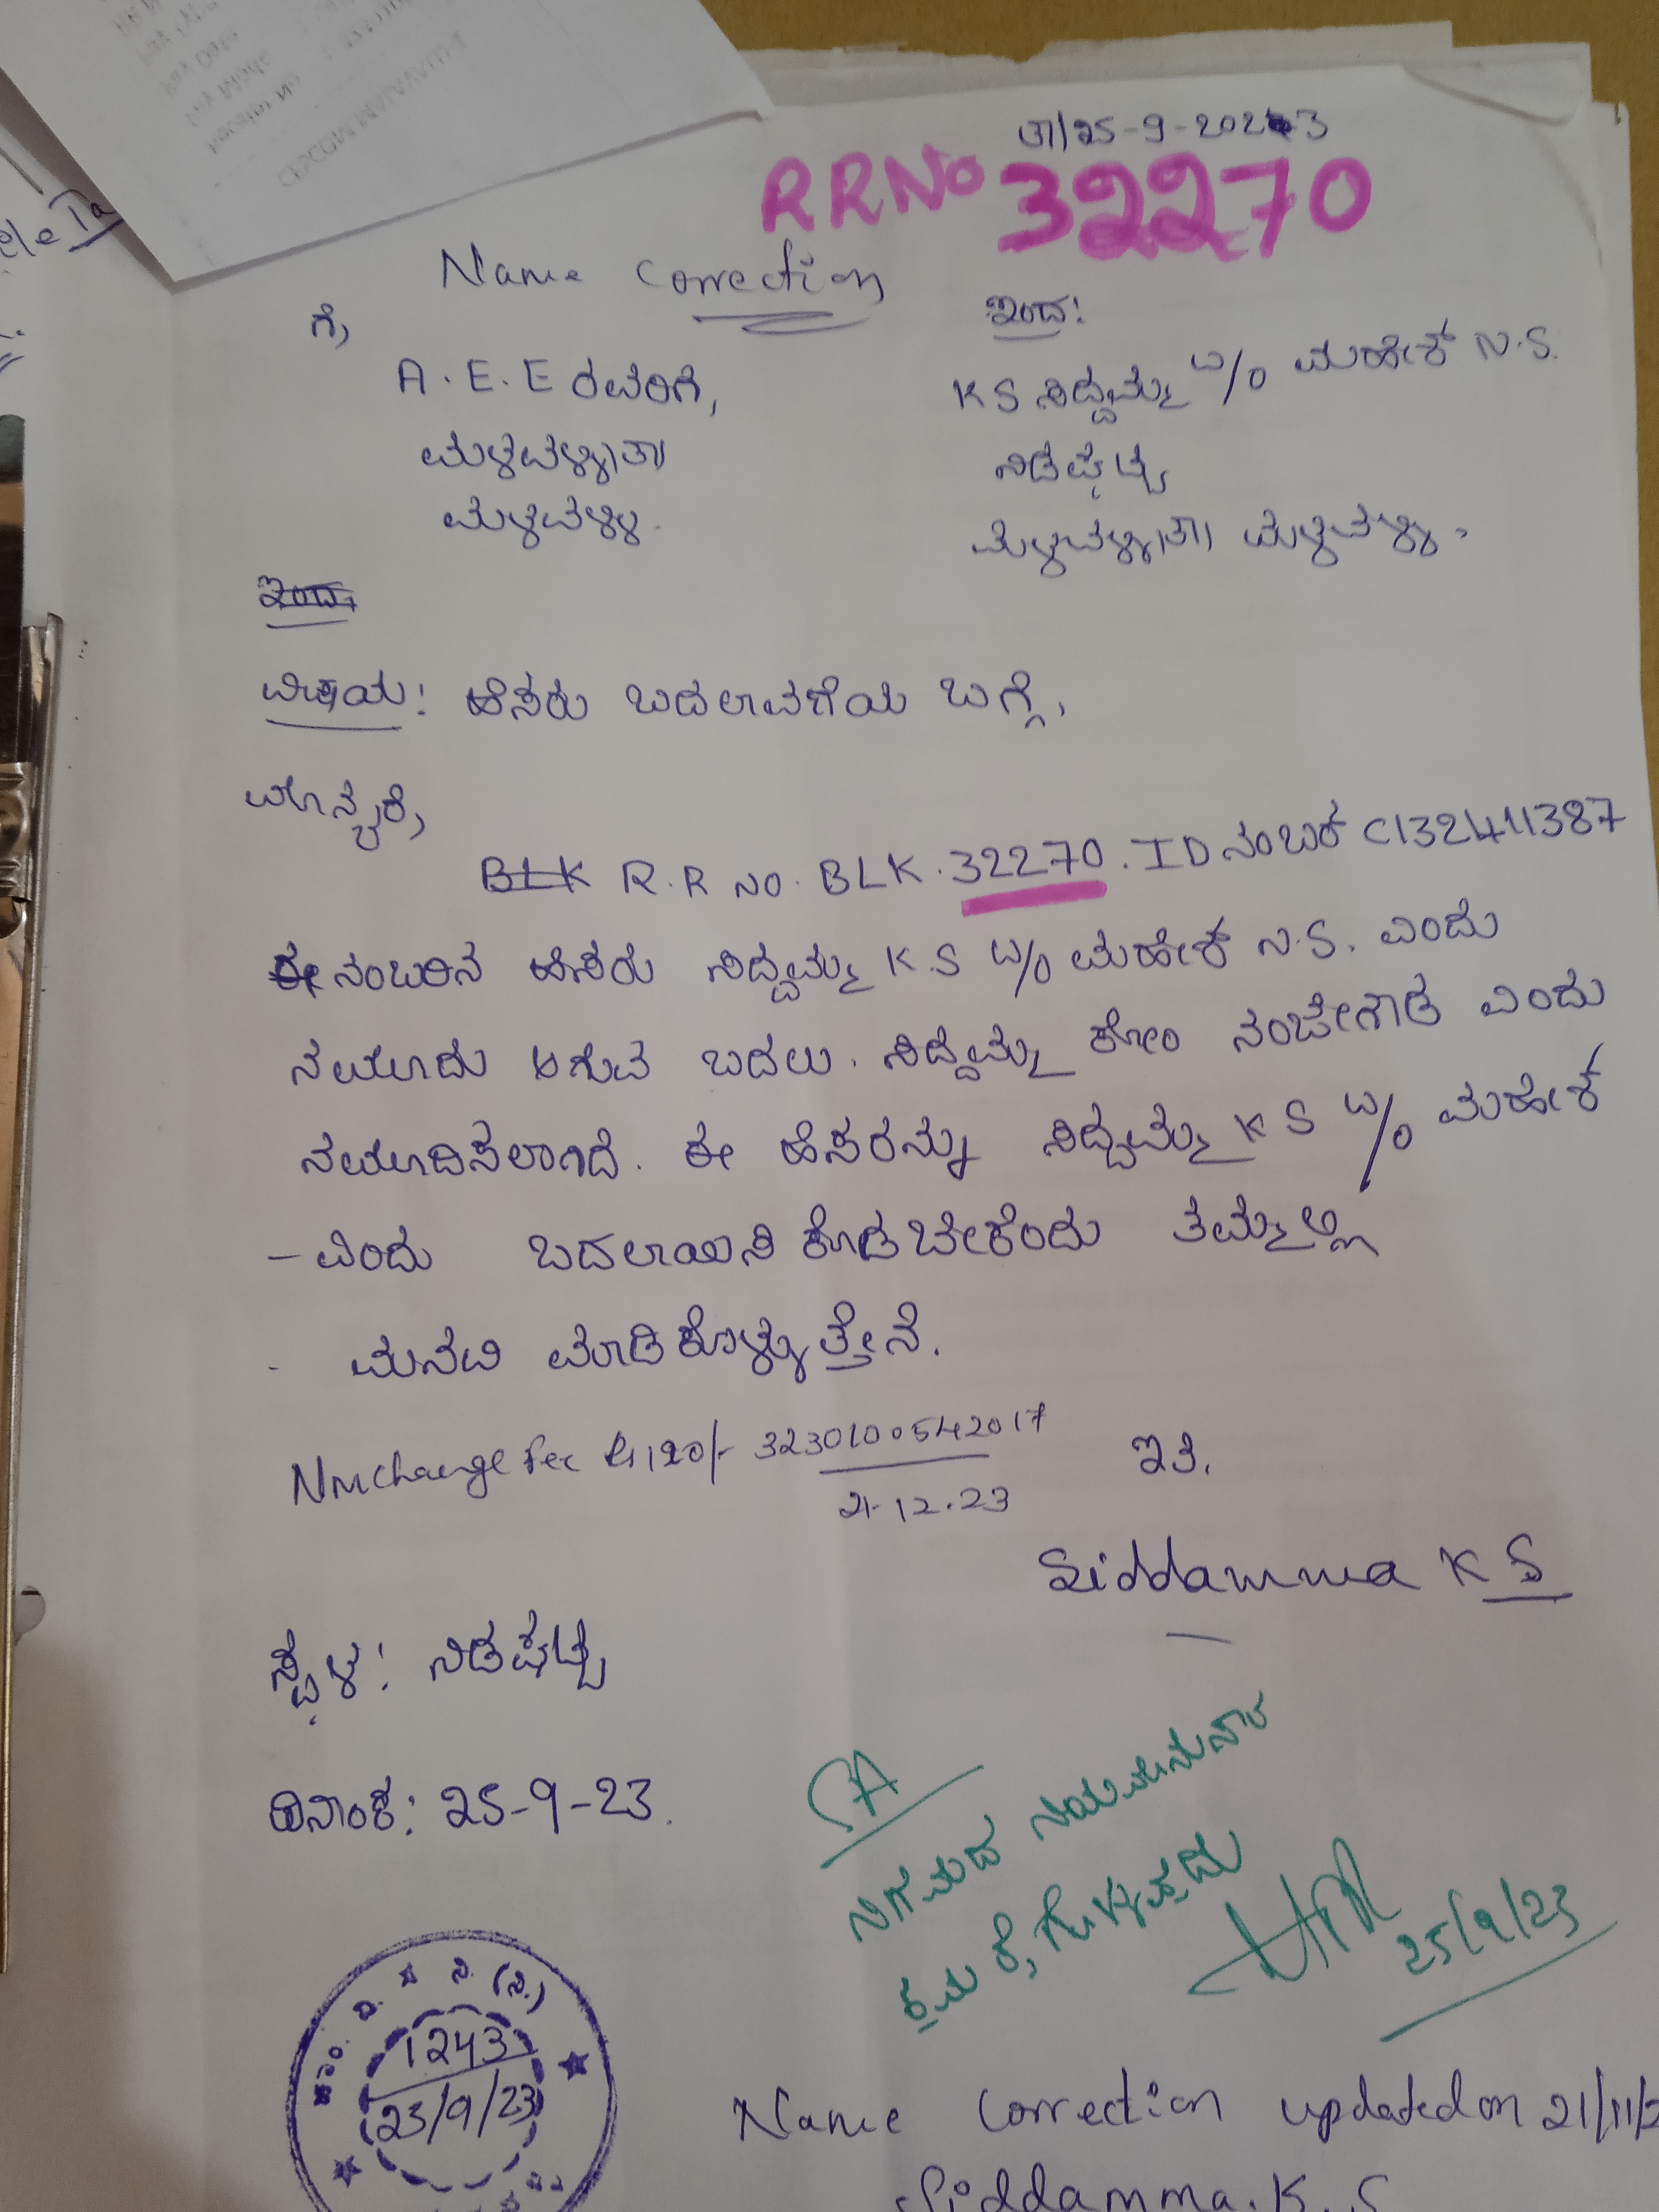 ತಾ/25-9-2023
RRNo 32270
Name Correction
ಗೆ,
A.E.E ರವರಿಗೆ,
ಮಳವಳ್ಳಿ ತಾ||
ಮಳವಳ್ಳಿ.
ಇಂದ:
KS ಸಿದ್ದಮ್ಮ W/o ಮಹೇಶ್ N.S.
ನಿಡಘಟ್ಟ
ಮಳವಳ್ಳಿ ತಾ|| ಮಳವಳ್ಳಿ.
ಇಂದ,
ವಿಷಯ: ಹೆಸರು ಬದಲಾವಣೆಯ ಬಗ್ಗೆ,
ಮಾನ್ಯರೆ,
BLK R.R NO. BLK.32270. ID ನಂಬರ್ C132411387
ಈ ನಂಬರಿನ ಹೆಸರು ಸಿದ್ದಮ್ಮ K.S W/o ಮಹೇಶ್ N.S. ಎಂದು
ನಮೂದು ಆಗುವ ಬದಲು. ಸಿದ್ದಮ್ಮ ಕೋಂ ನಂಜೇಗೌಡ ಎಂದು
ನಮೂದಿಸಲಾಗಿದೆ. ಈ ಹೆಸರನ್ನು ಸಿದ್ದಮ್ಮ K S W/o ಮಹೇಶ್
- ಎಂದು ಬದಲಾಯಿಸಿ ಕೊಡಬೇಕೆಂದು ತಮ್ಮಲ್ಲಿ
ಮನವಿ ಮಾಡಿಕೊಳ್ಳುತ್ತೇನೆ.
Nmchange fee Rs 120/- 3230100542017
21-12.23
ಇತಿ.
Siddamma K S
ಸ್ಥಳ: ನಿಡಘಟ್ಟ
ದಿನಾಂಕ: 25-9-23.
SA
ನಿಗಮದ ನಿಯಮಾನುಸಾರ
ಕ್ರಮ ಕೈಗೊಳ್ಳುವುದು
25/9/23
1243
25/9/23
Name Correction updated on 21/11/2
Siddamma.K.S